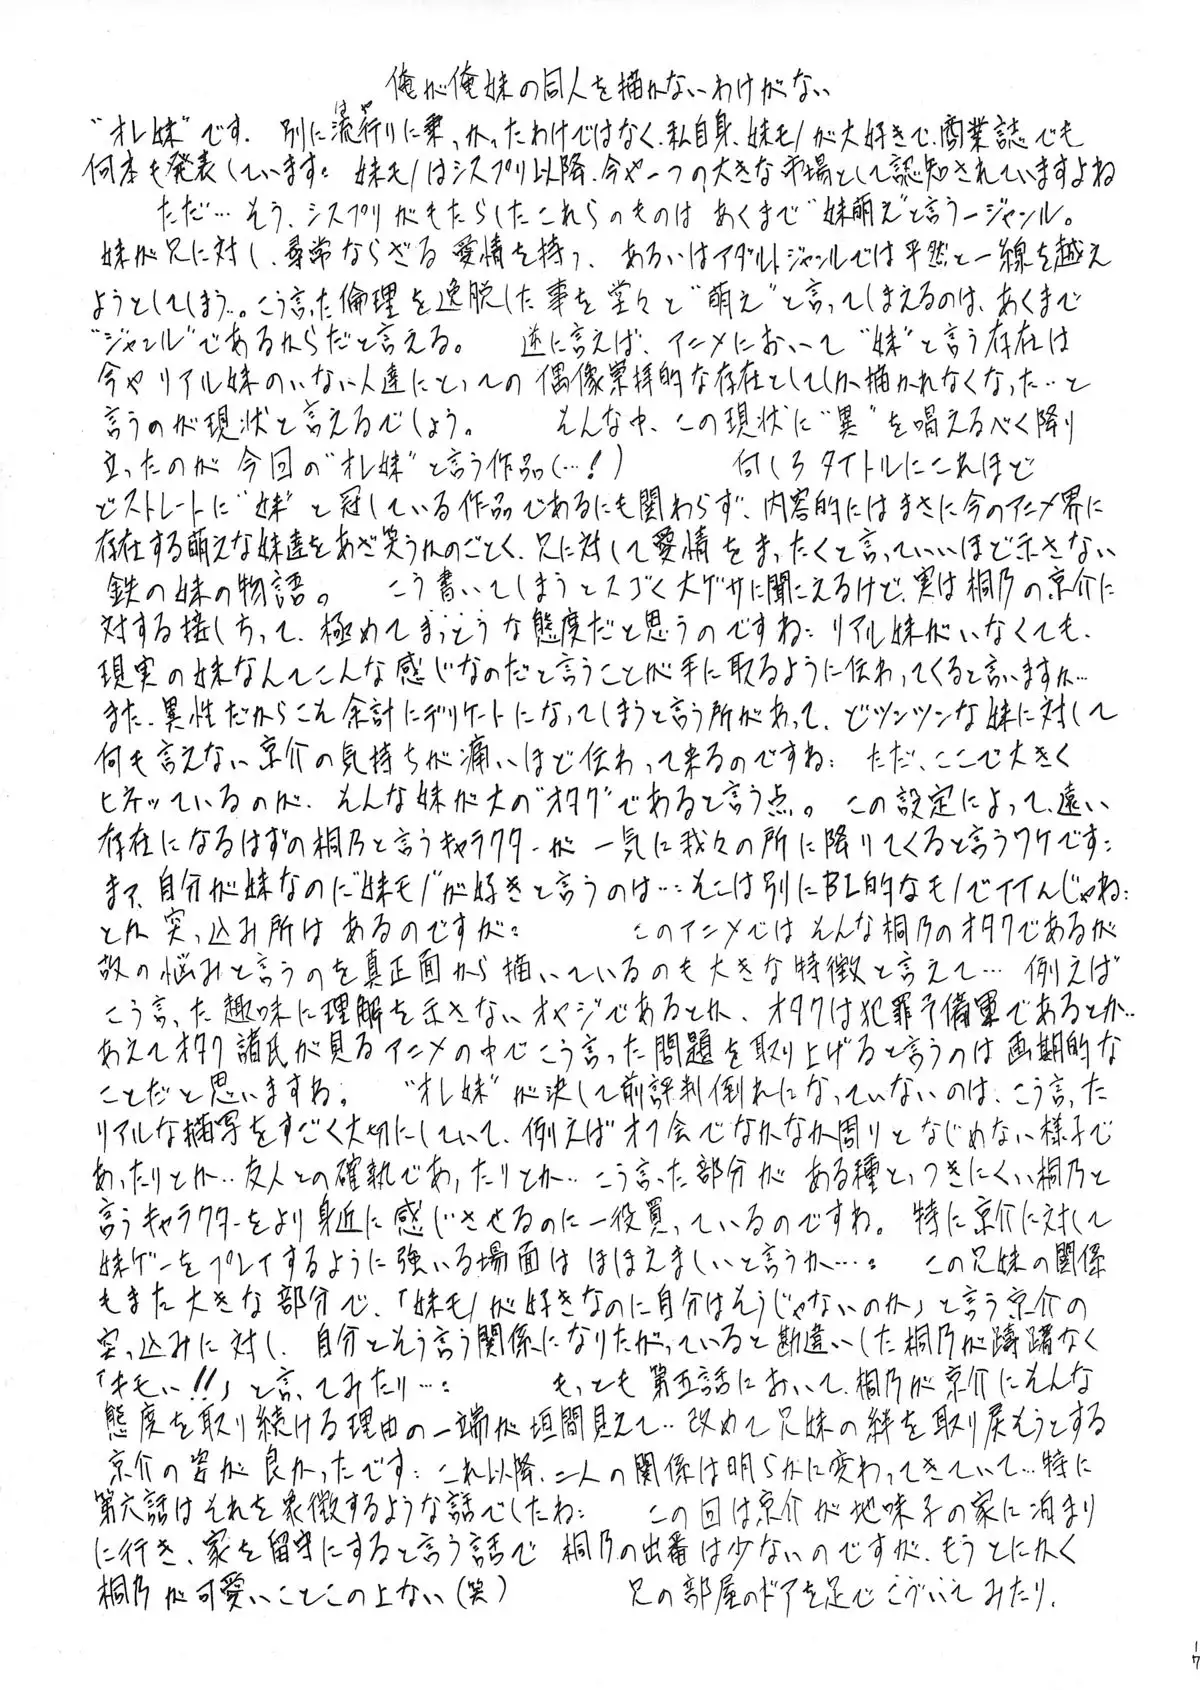 俺が俺妹の同人を描かないわけがない
“オレ妹”です. 別に流行り(はや)に乗っかったわけではなく、私自身、妹モノが大好きで、商業誌でも
何本も発表しています: 妹モノはシスプリ以降、今や一つの大きな市場として認知されていますよね
ただ… そう、シスプリがもたらしたこれらのものは あくまで“妹萌え”と言う一ジャンル。
妹が兄に対し、尋常ならざる愛情を持つ、 あるいはアダルトジャンルでは平然と一線を越え
ようとしてしまう…。こう言った倫理を逸脱した事を堂々と“萌え”と言ってしまえるのは、あくまで
“ジャンル”であるからだと言える。 逆に言えば、アニメにおいて“妹”と言う存在は
今やリアル妹のいない人達にとっての 偶像崇拝的な存在としてしか描かれなくなった…と
言うのが現状と言えるでしょう。 そんな中、この現状に“異”を唱えるべく降り
立ったのが 今回の“オレ妹”と言う作品(…!) 何しろタイトルにこれほど
どストレートに“妹”と冠している作品であるにも関わらず、内容的にはまさに今のアニメ界に
存在する萌えな妹達をあざ笑うかのごとく、兄に対して愛情をまったくと言っていいほど示さない
鉄の妹の物語。 こう書いてしまうとスゴく大ゲサに聞こえるけど、実は桐乃の京介に
対する接し方って、極めてまっとうな態度だと思うのですね: リアル妹がいなくても、
現実の妹なんてこんな感じなのだと言うことが手に取るように伝わってくると言いますか…
また、異性だからこそ余計にデリケートになってしまうと言う所があって、どツンツンな妹に対して
何も言えない京介の気持ちが痛いほど伝わって来るのですね: ただ、ここで大きく
ヒネッているのが、そんな妹が大の“オタク”であると言う点。 この設定によって、遠い
存在になるはずの桐乃と言うキャラクターが 一気に我々の所に降りてくると言うワケです:
まァ、自分が妹なのに“妹モノ”が好きと言うのは…: そこは別にBL的なモノでイイんじゃね:
とか 突っ込み所は あるのですが: このアニメでは そんな桐乃のオタクであるが
故の悩みと言うのを真正面から描いているのも大きな特徴と言えて… 例えば
こう言った趣味に理解を示さないオヤジであるとか、オタクは犯罪予備軍であるとか…
あえてオタク諸氏が見るアニメの中でこう言った問題を取り上げると言うのは画期的な
ことだと思いますね。 “オレ妹”が決して前評判倒れになっていないのは、こう言った
リアルな描写をすごく大切にしていて、例えばオフ会でなかなか周りとなじめない様子で
あったりとか…友人との確執であったりとか… こう言った部分が ある種とっつきにくい桐乃と
言うキャラクターをより身近に感じさせるのに一役買っているのですね。 特に京介に対して
妹ゲーをプレイするように強いる場面は ほほえましいと言うか…: この兄妹の関係
もまた大きな部分で、「妹モノが好きなのに自分はそうじゃないのか」と言う京介の
突っ込みに対し、自分とそう言う関係になりたがっていると勘違いした桐乃が躊躇なく
「キモい!!」と言ってみたり…: もっとも 第五話において、桐乃が京介にそんな
態度を取り続ける理由の一端が垣間見えて… 改めて兄妹の絆を取り戻そうとする
京介の姿が良かったです: これ以降、二人の関係は明らかに変わってきていて…特に
第六話はそれを象徴するような話でしたね: この回は京介が地味子の家に泊まり
に行き、家を留守にすると言う話で 桐乃の出番は少ないのですが、もうとにかく
桐乃が可愛いことこの上ない(笑) 兄の部屋のドアを足でこづいてみたり、
17